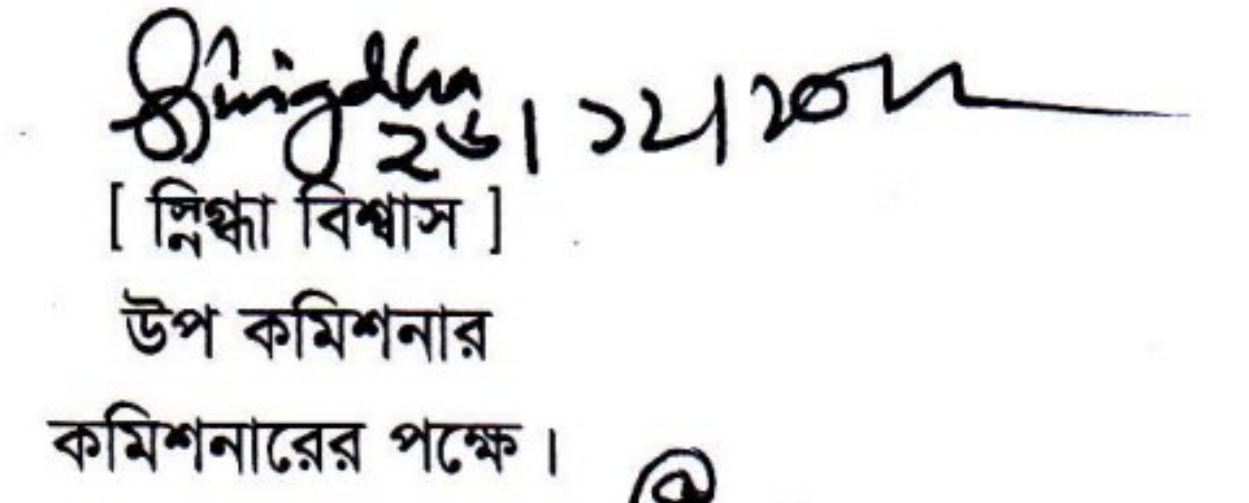 Snigdha
২৬। ১২।
[ স্নিগ্ধা বিশ্বাস ]
উপ কমিশনার
কমিশনারের পক্ষে।